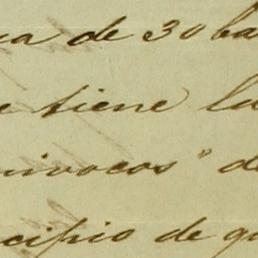 ca de 30 ba
e tiene la
nivocos" de
ncipio de qu